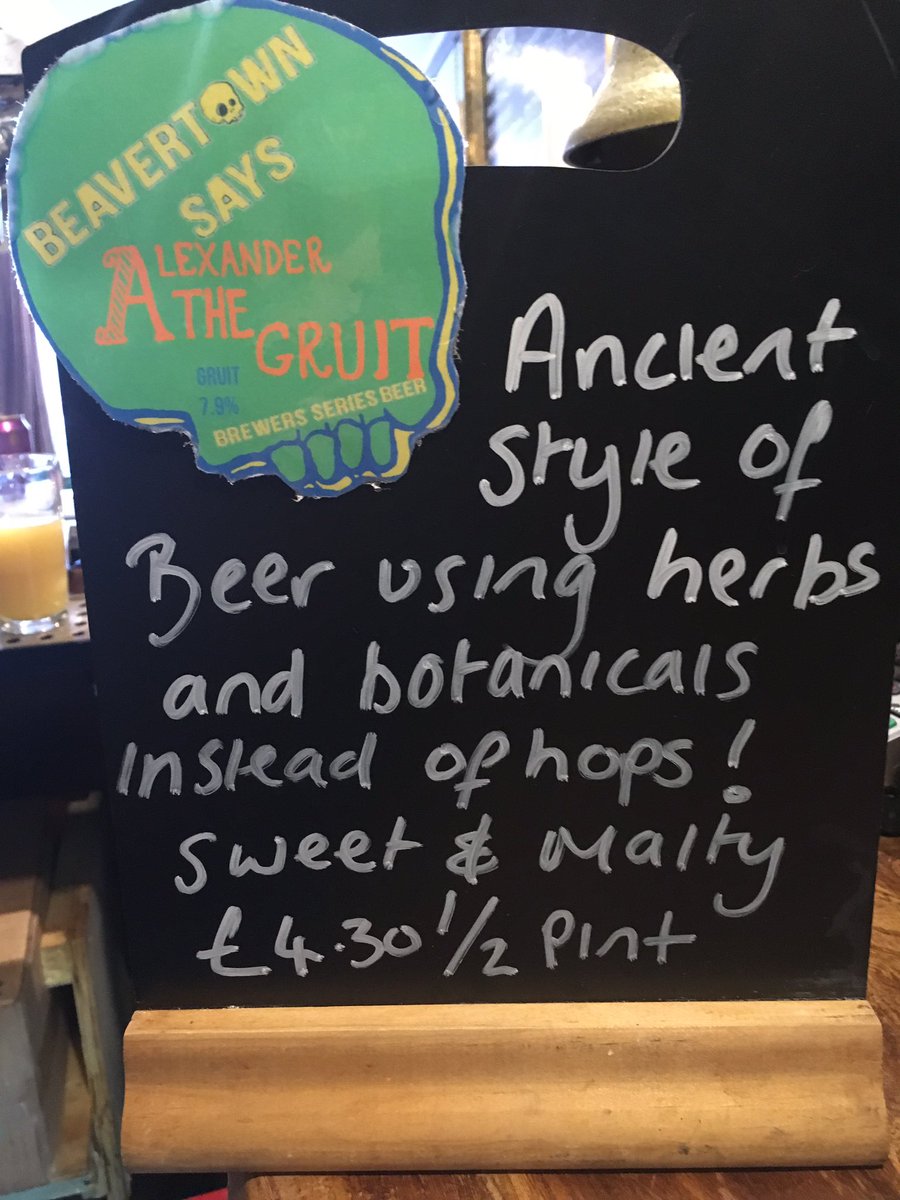 BEAVERTOWN
SAYS
ALEXANDER
THE
GRUIT
GRUIT
7.9%
BREWERS SERIES BEER
Ancient
style of
Beer using herbs
and botanicals
Instead of hops!
Sweet & Malty
£4.30 1/2 Pint